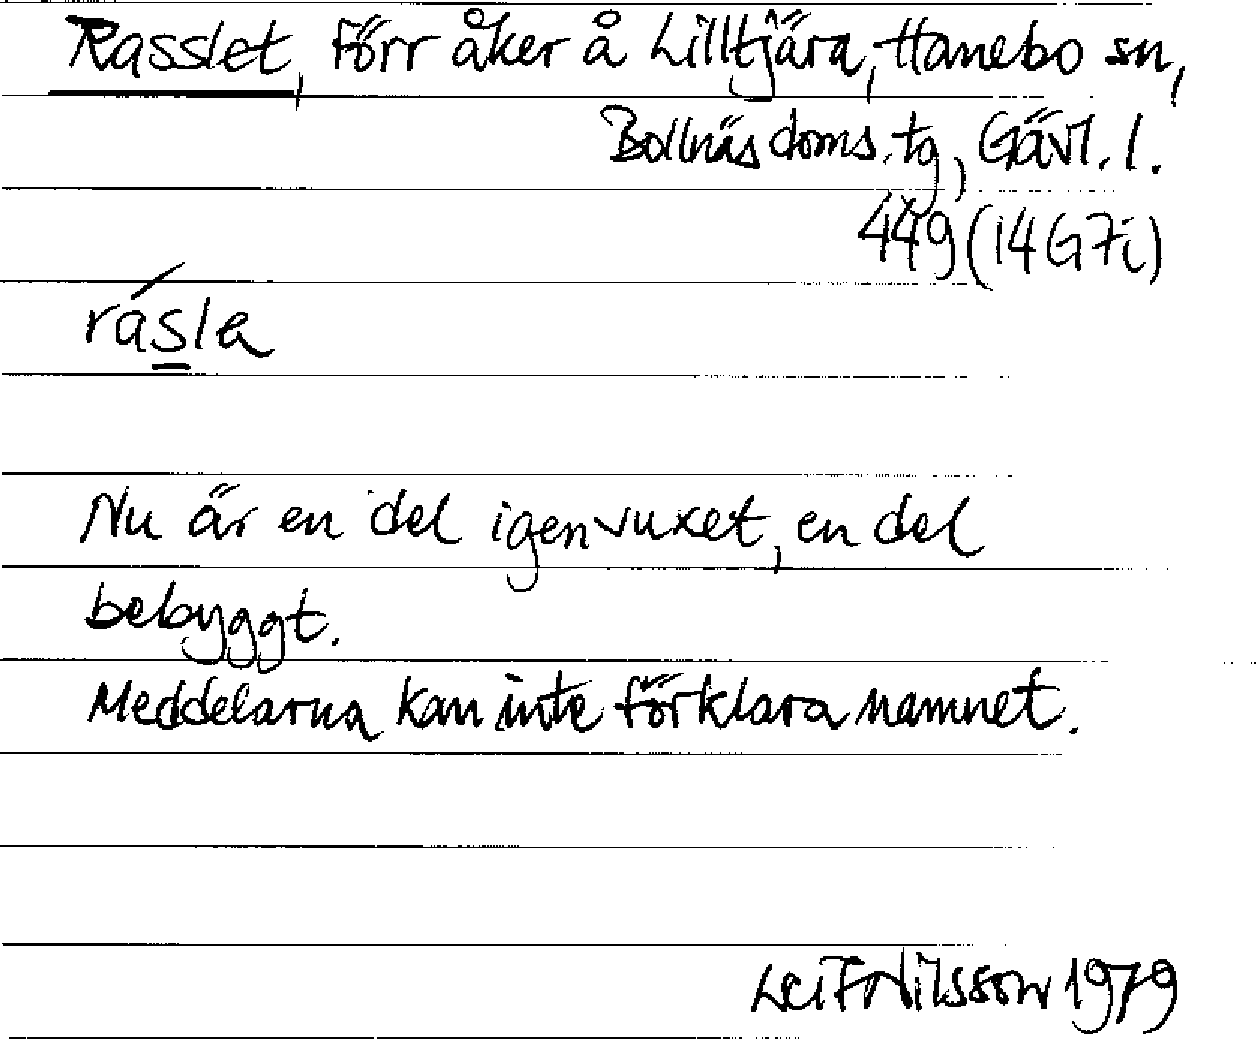 Rasslet, förr åker å Lilltjära, Hanebo sn,
Bollnäs doms. tg, Gävl. l.
449 (14G7i)
rásla
Nu är en del igenvuxet, en del
bebyggt.
Meddelarna kan inte förklara namnet.
Leif Nilsson 1979